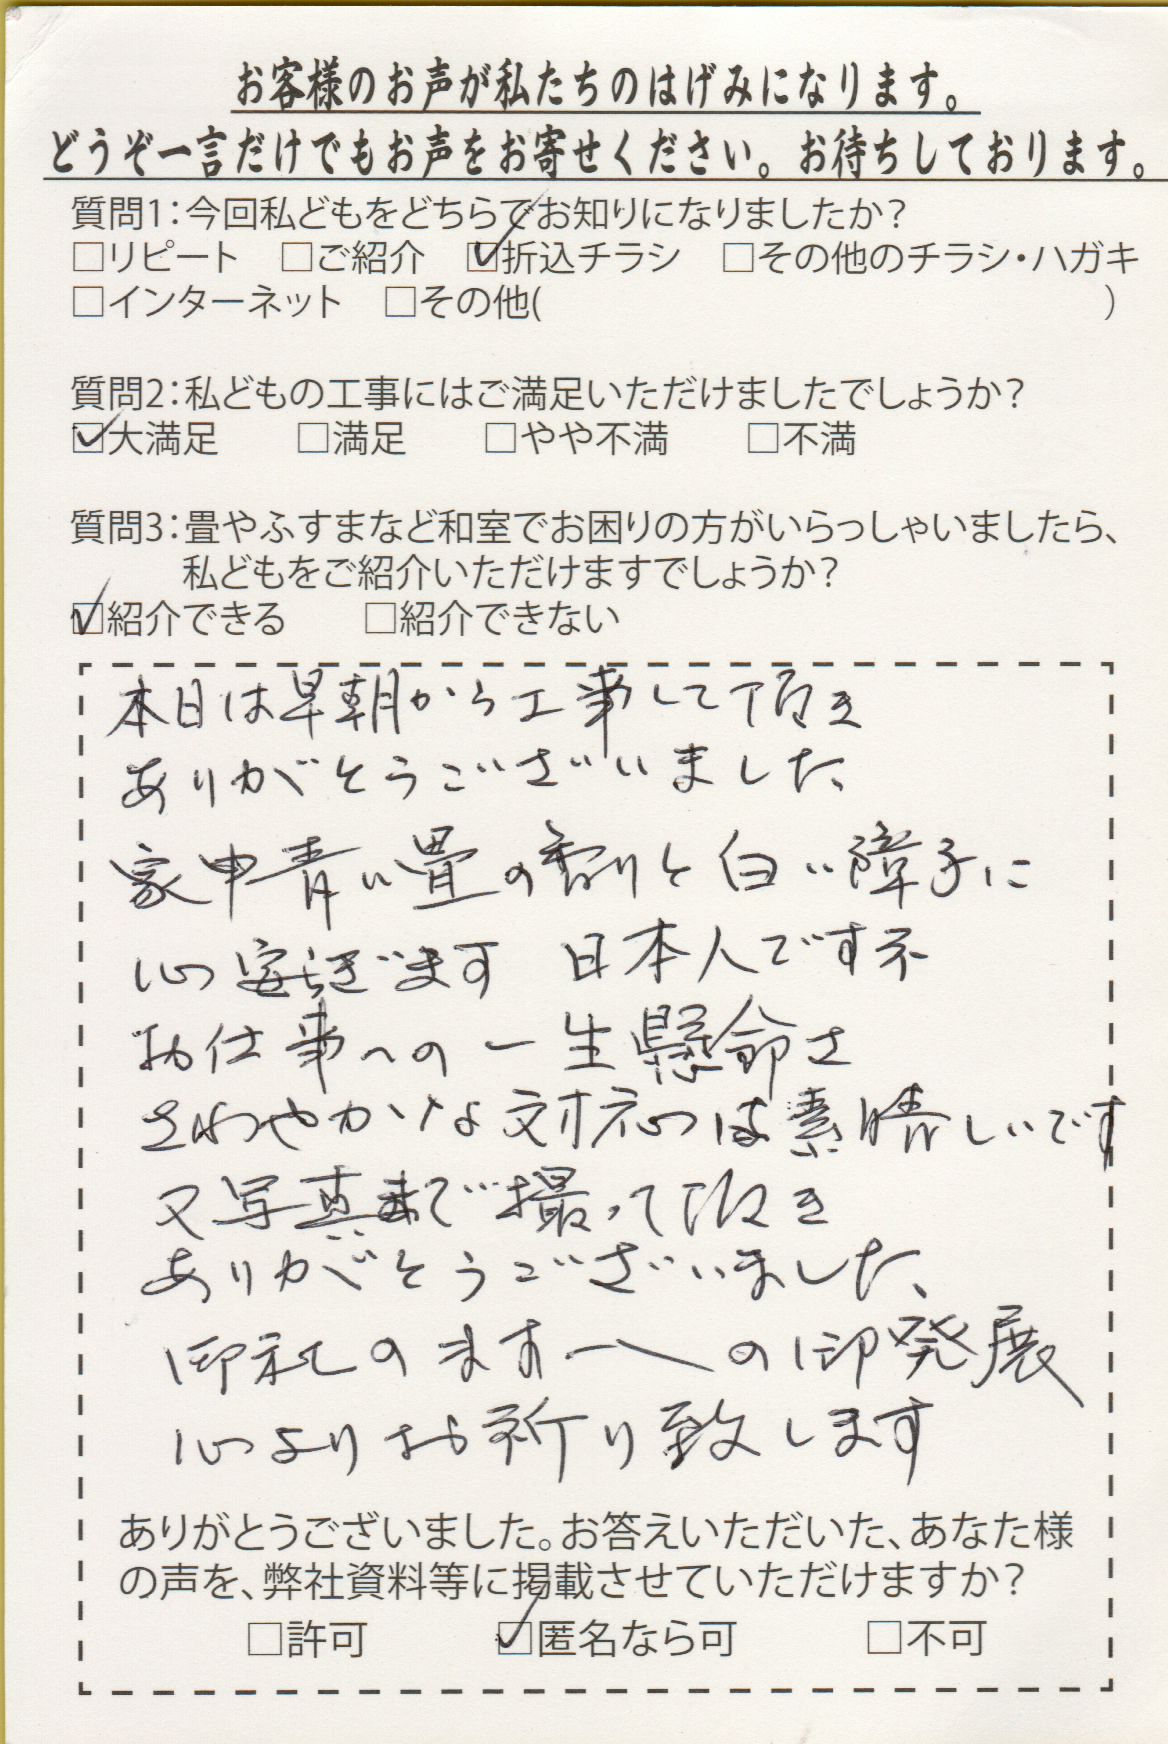 お客様のお声が私たちのはげみになります。
どうぞ一言だけでもお声をお寄せください。お待ちしております。
質問1：今回私どもをどちらでお知りになりましたか？
□リピート □ご紹介 ☑折込チラシ □その他のチラシ・ハガキ
□インターネット □その他( )
質問2：私どもの工事にはご満足いただけましたでしょうか？
☑大満足 □満足 □やや不満 □不満
質問3：畳やふすまなど和室でお困りの方がいらっしゃいましたら、
私どもをご紹介いただけますでしょうか？
☑紹介できる □紹介できない
本日は早朝から工事して頂き
ありがとうございました、
家中青い畳の香りと白い障子に
心安らぎます 日本人ですネ
お仕事への一生懸命さ
さわやかな対応は素晴しいです
又写真まで撮って頂き
ありがとうございました、
御社のますへの御発展
心よりお祈り致します
ありがとうございました。お答えいただいた、あなた様
の声を、弊社資料等に掲載させていただけますか？
□許可 ☑匿名なら可 □不可